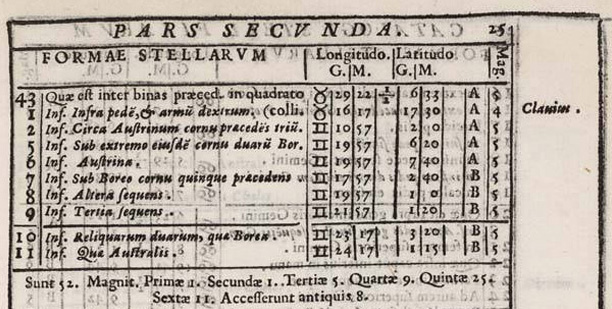 PARS SECVNDA. 25
FORMAE STELLARVM Longitudo. Latitudo Mag.
G. M. G. M.
43 Quæ est inter binas præced. in quadrato ♉ 29 22 ½ 6 33 A 5
1 Inf. Infra pedē, & armū dextrum. (colli. ♉ 16 17 17 30 A 4 Clavium.
2 Inf. Circa Austrinum cornu præcedēs triū. ♊ 10 57 2 0 A 5
5 Inf. Sub extremo eiusdē cornu duarū Bor. ♊ 19 57 6 20 A 5
6 Inf. Austrina. ♊ 19 57 7 40 A 5
7 Inf. Sub Boreo cornu quinque præcedens ♊ 17 57 2 40 B 5
8 Inf. Altera sequens. ♊ 19 57 1 0 B 5
9 Inf. Tertia sequens. ♊ 21 57 1 20 B 5
10 Inf. Reliquarum duarum, quæ Borea. ♊ 23 17 3 20 B 5
11 Inf. Quæ Australis. ♊ 24 17 1 15 B 5
Sunt 52. Magnit. Primæ 1. Secundæ 1. Tertiæ 5. Quartæ 9. Quintæ 25
Sextæ 11. Accesserunt antiquis 8.